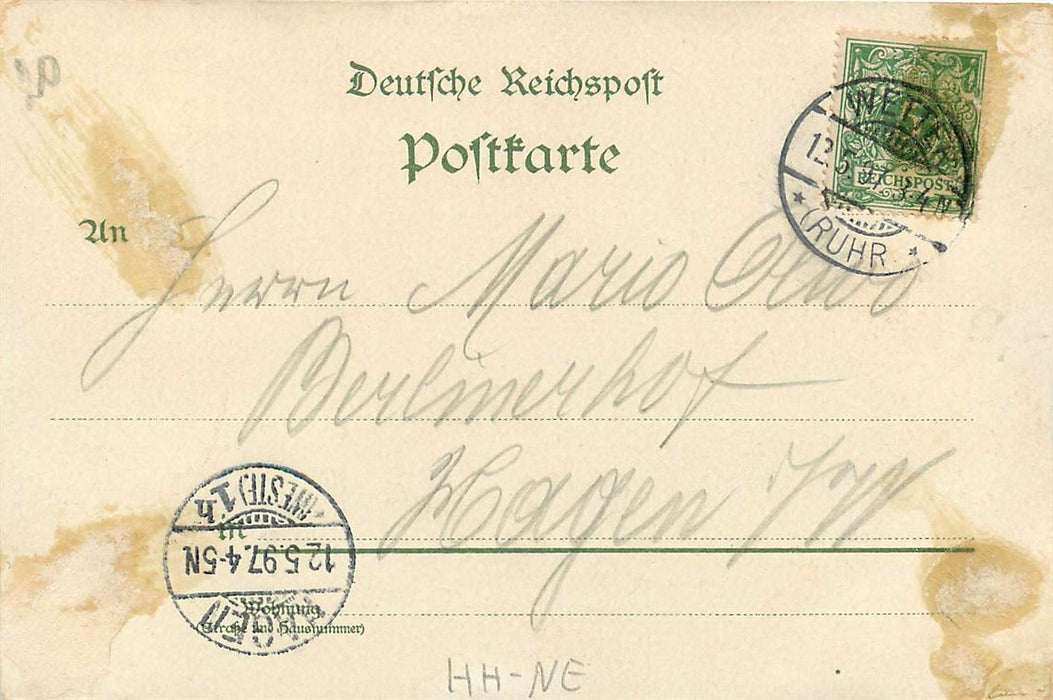 Deutsche Reichspost
Postkarte
An
WETTER
12.5.97. 3-4N
(RUHR
REICHSPOST
Herrn Mario
Berlinerhof
Hagen i/W
HAGEN
(WESTF.) 1h
12.5.97.4-5N
in
Wohnung
(Straße und Hausnummer)
HH-NE